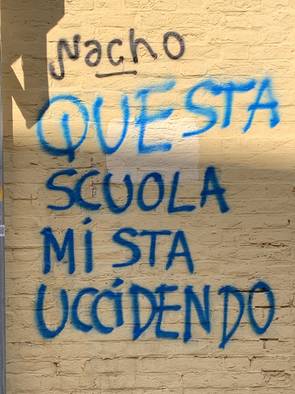 Nacho
QUESTA
SCUOLA
Mi STA
UCCiDENDO